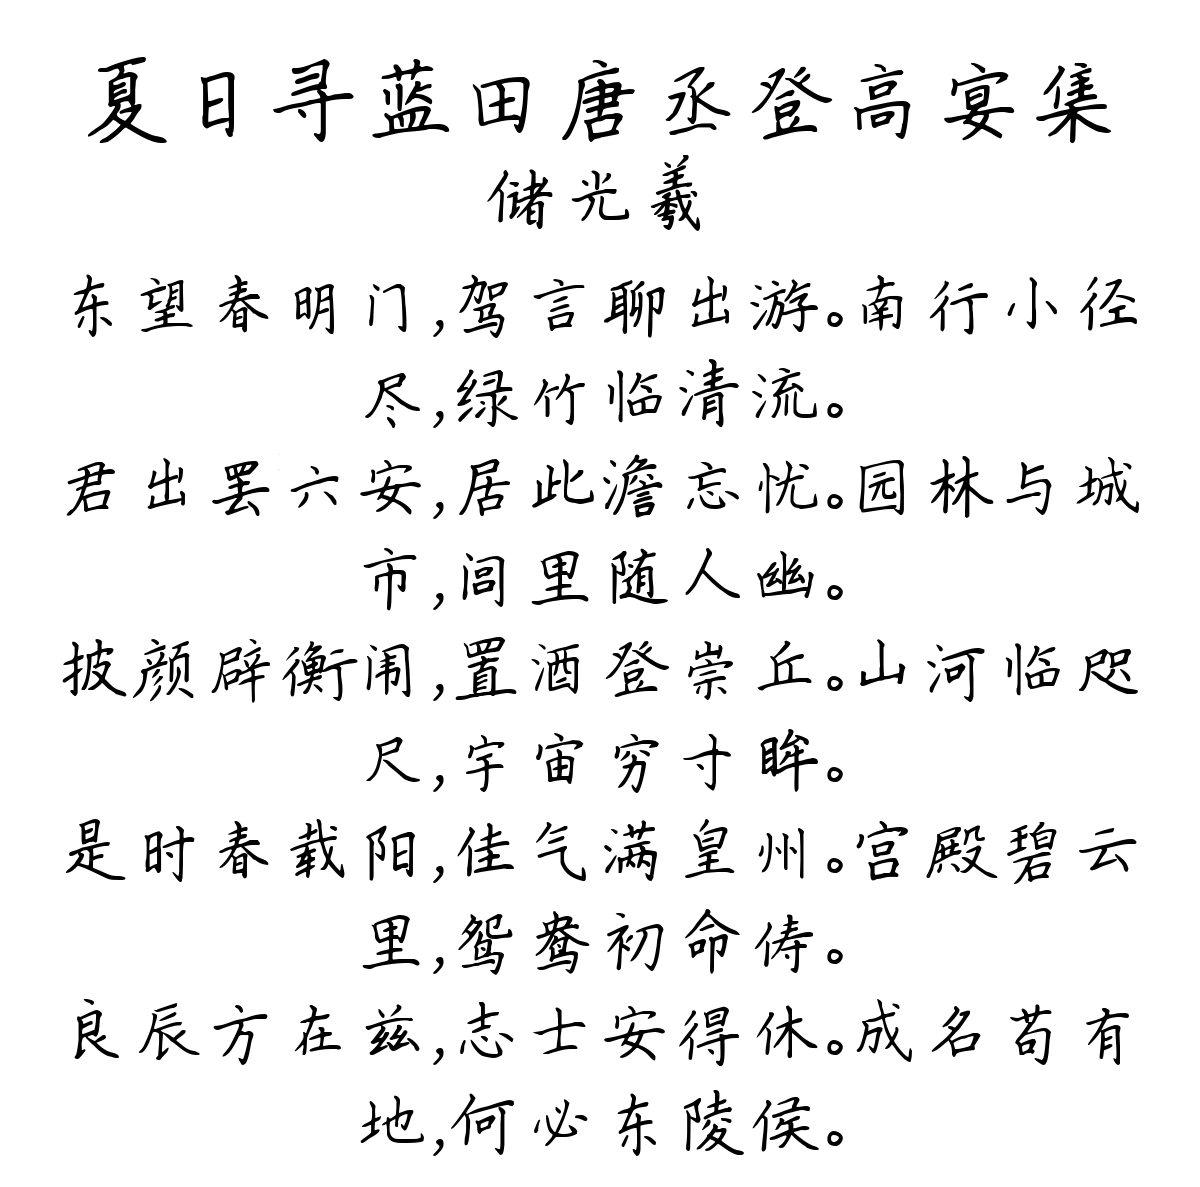 夏日寻蓝田唐丞登高宴集
储光羲
东望春明门,驾言聊出游。南行小径
尽,绿竹临清流。
君出罢六安,居此澹忘忧。园林与城
市,闾里随人幽。
披颜辟衡闱,置酒登崇丘。山河临咫
尺,宇宙穷寸眸。
是时春载阳,佳气满皇州。宫殿碧云
里,鸳鸯初命俦。
良辰方在兹,志士安得休。成名苟有
地,何必东陵侯。